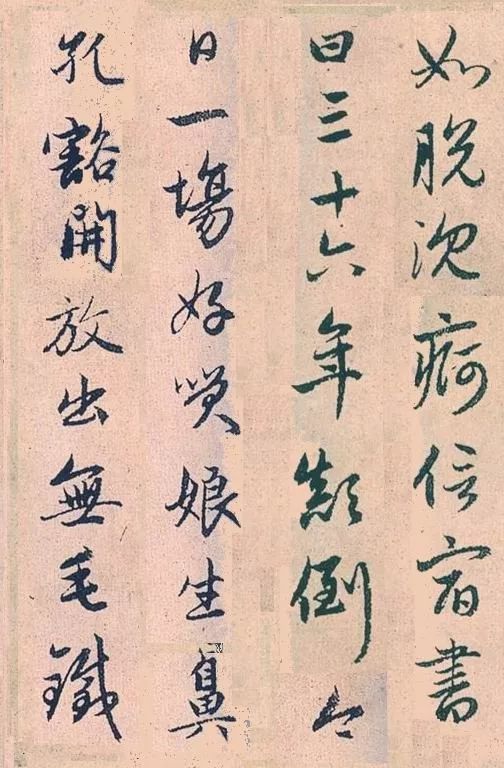 如脫沉痾信宿書
曰三十六年顛倒今
日一場好笑娘生鼻
孔豁開放出無毛鐵